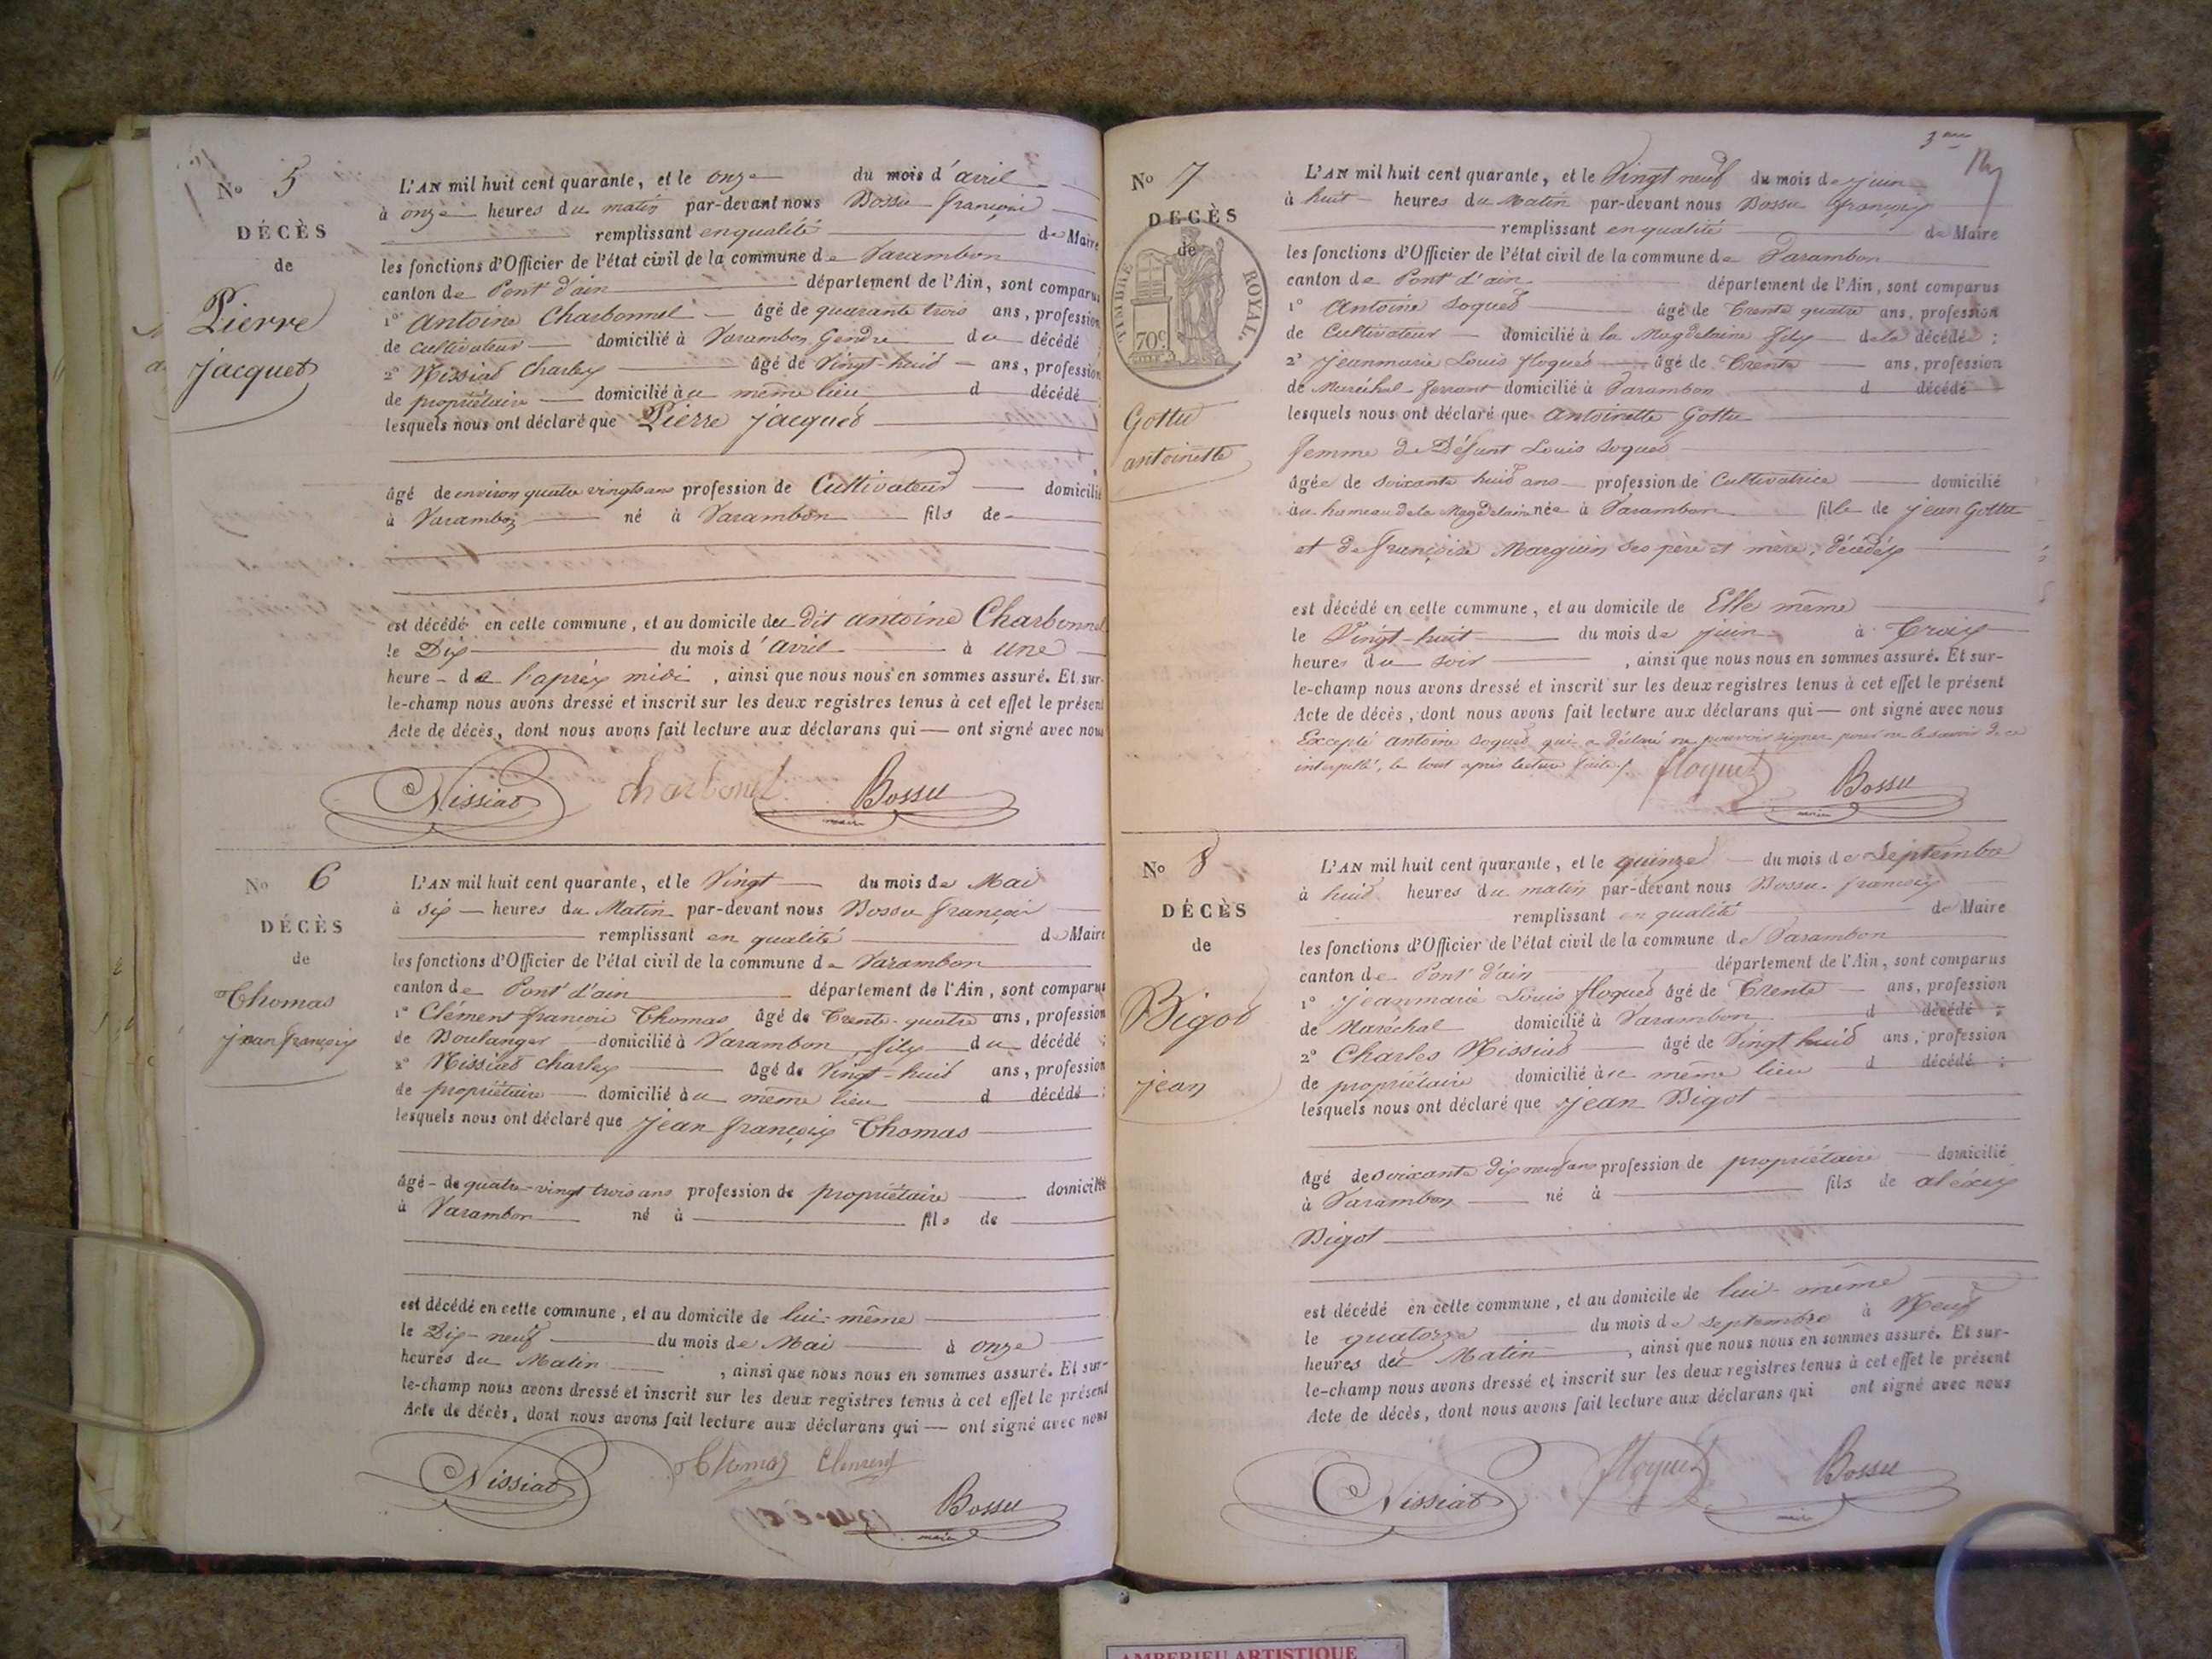 No 5
DÉCÈS
de
Pierre
Jacquet
L'AN mil huit cent quarante, et le onze du mois d'avril
à onze heures du matin par-devant nous Bossu françois
remplissant en qualité de Maire
les fonctions d'Officier de l'état civil de la commune de Varambon
canton de Pont d'ain département de l'Ain, sont comparus
1° Antoine Charbonnel âgé de quarante trois ans, profession
de cultivateur domicilié à Varambon Gendre du décédé ;
2° Nissiat Charles âgé de Vingt-huit ans, profession
de propriétaire domicilié au même lieu d décédé ;
lesquels nous ont déclaré que Pierre Jacquet
âgé de environ quatre vingts ans profession de Cultivateur domicilié
à Varambon né à Varambon fils de
est décédé en cette commune, et au domicile du dit antoine Charbonnel
le Dix du mois d'avril à une
heure de l'après midi, ainsi que nous nous en sommes assuré. Et sur-
le-champ nous avons dressé et inscrit sur les deux registres tenus à cet effet le présent
Acte de décès, dont nous avons fait lecture aux déclarans qui ont signé avec nous
Nissiat Charbonel Bossu
maire
No 6
DÉCÈS
de
Thomas
jean françois
L'AN mil huit cent quarante, et le Vingt du mois de Mai
à six heures du Matin par-devant nous Bossu françois
remplissant en qualité de Maire
les fonctions d'Officier de l'état civil de la commune de Varambon
canton de Pont d'ain département de l'Ain, sont comparus
1° Clément françois Thomas âgé de Trente-quatre ans, profession
de Boulanger domicilié à Varambon fils du décédé ;
2° Nissiat Charles âgé de Vingt-huit ans, profession
de propriétaire domicilié au même lieu d décédé ;
lesquels nous ont déclaré que Jean françois Thomas
âgé de quatre-vingt trois ans profession de propriétaire domicilié
à Varambon né à fils de
est décédé en cette commune, et au domicile de lui-même
le Dix-neuf du mois de Mai à onze
heures du Matin, ainsi que nous nous en sommes assuré. Et sur-
le-champ nous avons dressé et inscrit sur les deux registres tenus à cet effet le présent
Acte de décès, dont nous avons fait lecture aux déclarans qui ont signé avec nous
Nissiat Thomas Clément
Bossu
maire
3me
No 7
DECÈS
de
TIMBRE ROYAL.
70c
Gottu
antoinette
L'AN mil huit cent quarante, et le Vingt neuf du mois de juin
à huit heures du Matin par-devant nous Bossu françois
remplissant en qualité de Maire
les fonctions d'Officier de l'état civil de la commune de Varambon
canton de Pont d'ain département de l'Ain, sont comparus
1° Antoine Soquet âgé de Trente quatre ans, profession
de Cultivateur domicilié à la Magdelaine fils de la décédée ;
2° Jeanmarie Louis floquet âgé de Trente ans, profession
de Maréchal ferrant domicilié à Varambon d décédé
lesquels nous ont déclaré que Antoinette Gottu
femme de Défunt Louis Soquet
âgée de soixante huit ans profession de Cultivatrice domicilié
au hameau de la Magdelaine née à Varambon fille de Jean Gottu
et de françoise Marguin ses père et mère, décédés
est décédé en cette commune, et au domicile de Elle même
le Vingt-huit du mois de juin à Trois
heures du soir, ainsi que nous nous en sommes assuré. Et sur-
le-champ nous avons dressé et inscrit sur les deux registres tenus à cet effet le présent
Acte de décès, dont nous avons fait lecture aux déclarans qui ont signé avec nous
Excepté antoine Soquet qui a déclaré ne pouvoir signer pour ne le savoir de ce
interpellé, le tout après lecture faite. floquet Bossu
maire
No 8
DÉCÈS
de
Bigot
jean
L'AN mil huit cent quarante, et le quinze du mois de Septembre
à huit heures du matin par-devant nous Bossu françois
remplissant en qualité de Maire
les fonctions d'Officier de l'état civil de la commune de Varambon
canton de Pont d'ain département de l'Ain, sont comparus
1° Jeanmarie Louis floquet âgé de Trente ans, profession
de Maréchal domicilié à Varambon d décédé ;
2° Charles Nissiat âgé de Vingt huit ans, profession
de propriétaire domicilié au même lieu d décédé ;
lesquels nous ont déclaré que Jean Bigot
âgé de soixante dix neuf ans profession de propriétaire domicilié
à Varambon né à fils de aléxis
Bigot
est décédé en cette commune, et au domicile de lui-même
le quatorze du mois de septembre à Neuf
heures du Matin, ainsi que nous nous en sommes assuré. Et sur-
le-champ nous avons dressé et inscrit sur les deux registres tenus à cet effet le présent
Acte de décès, dont nous avons fait lecture aux déclarans qui ont signé avec nous
Nissiat floquet Bossu
maire
AMBERIEU ARTISTIQUE